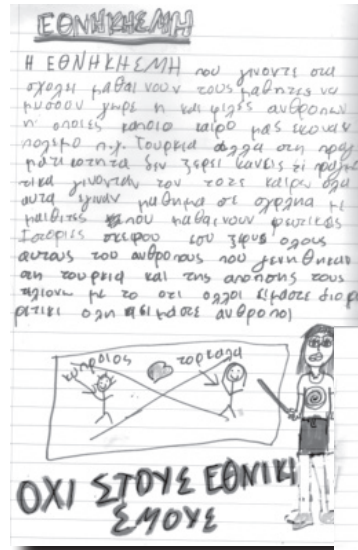 ΕΘΝΗΚΗΣΜΗ
Η ΕΘΝΗΚΗΣΜΗ που γινοντε στα
σχολει μαθαινουν τους μαθητες να
μυσουν χωρε η και φιλες ανθροπων
η οποιες καποιο καιρο μας εκαναν
πολεμο π.χ. Τουρκια αλλα στη πραγ
ματικοτητα δεν ξερει κανεις τι πραγμα
τικα γινονταν τον τοτε καιρω ολα
αυτα εγιναν μαθημα στα σχοληα με
μαθιτες που μαθαινουν ψευτικες
Ιστοριες εσυ ολους
αυτους του ανθροπους που γενηθηκαν
στη τουρκια και της αποψης τους
με το οτι ολλοι ειμαστε διαφο
ρετικι ολη ειμαστε ανθροποι
κυπραιος
τορκαλα
ΟΧΙ ΣΤΟΥΣ ΕΘΝΙΚΙ
ΣΜΟΥΣ